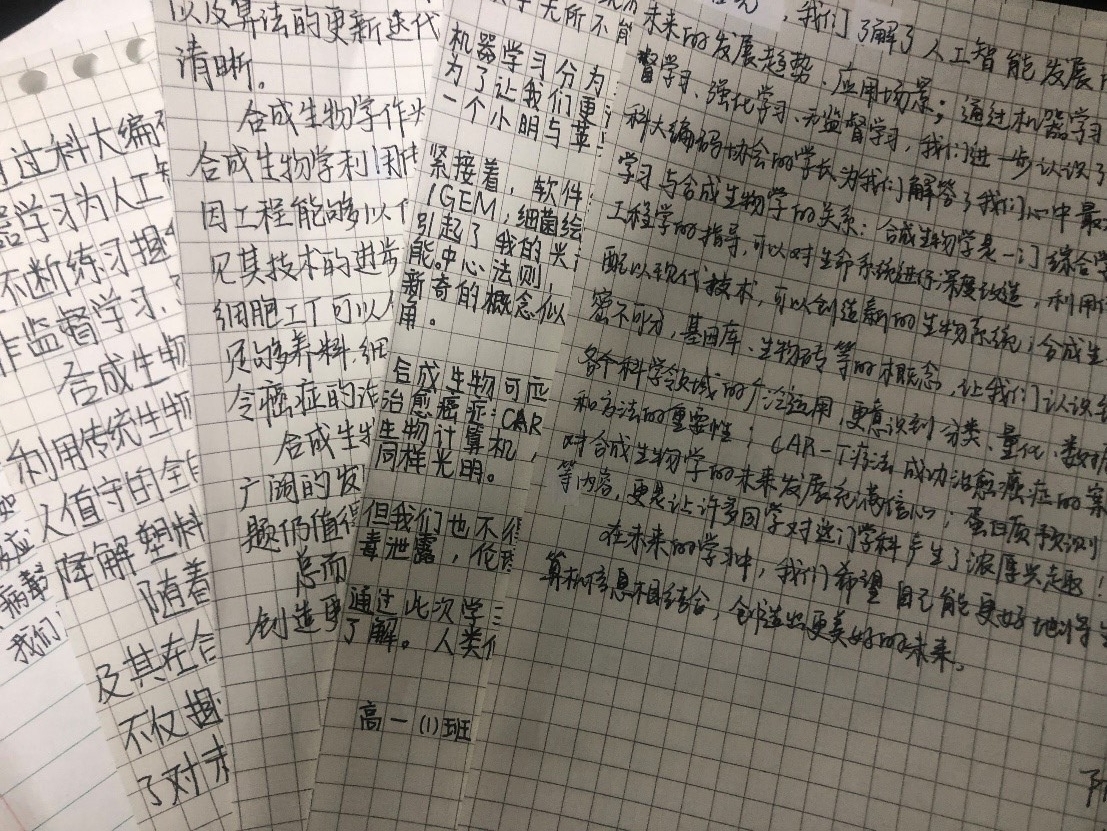 过科大编
器学习为人工智
不断练习
作监督学习、
合成生物
利用传统生物
入值守的全
降解塑料
随着
及其在合
不仅
了对未
病毒
我们
以及算法的更新迭代
清晰。
合成生物学作为
合成生物学利用
因工程能够以
见其技术的进步
细胞工厂可以
足够养料,细
令癌症的治
合成生
广阔的发
题仍值得
总而
创造更
无所不能
机器学习分为
为了让我们更
一个小明与苹
紧接着,软件
iGEM,细菌绘
引起了我的兴
能。中心法则,
新奇的概念似
角。
合成生物可应
治愈癌症:CAR
生物计算机,
同样光明。
但我们也不
毒泄露,伦
通过此次学
了解。人类
高一(1)班
,我们了解了人工智能发展
未来的发展趋势、应用场景;通过机器学习
督学习、强化学习、无监督学习,我们进一步认识了
科大编码协会的学长为我们解答了我们心中最
学习与合成生物学的关系:合成生物学是一门综合学
工程学的指导,可以对生命系统进行深度改造,利用
配以现代技术,可以创造新的生物系统;合成生
密不可分,基因库、生物砖等的概念,让我们认识到
各个科学领域的广泛运用,更意识到分类、量化、数
和方法的重要性;CAR-T疗法成功治愈癌症的案
对合成生物学的未来发展充满信心;蛋白质预测
等内容,更是让许多同学对这门学科产生了浓厚兴趣!
在未来的学习中,我们希望自己能更好地将生
算机信息相结合,创造出更美好的未来。